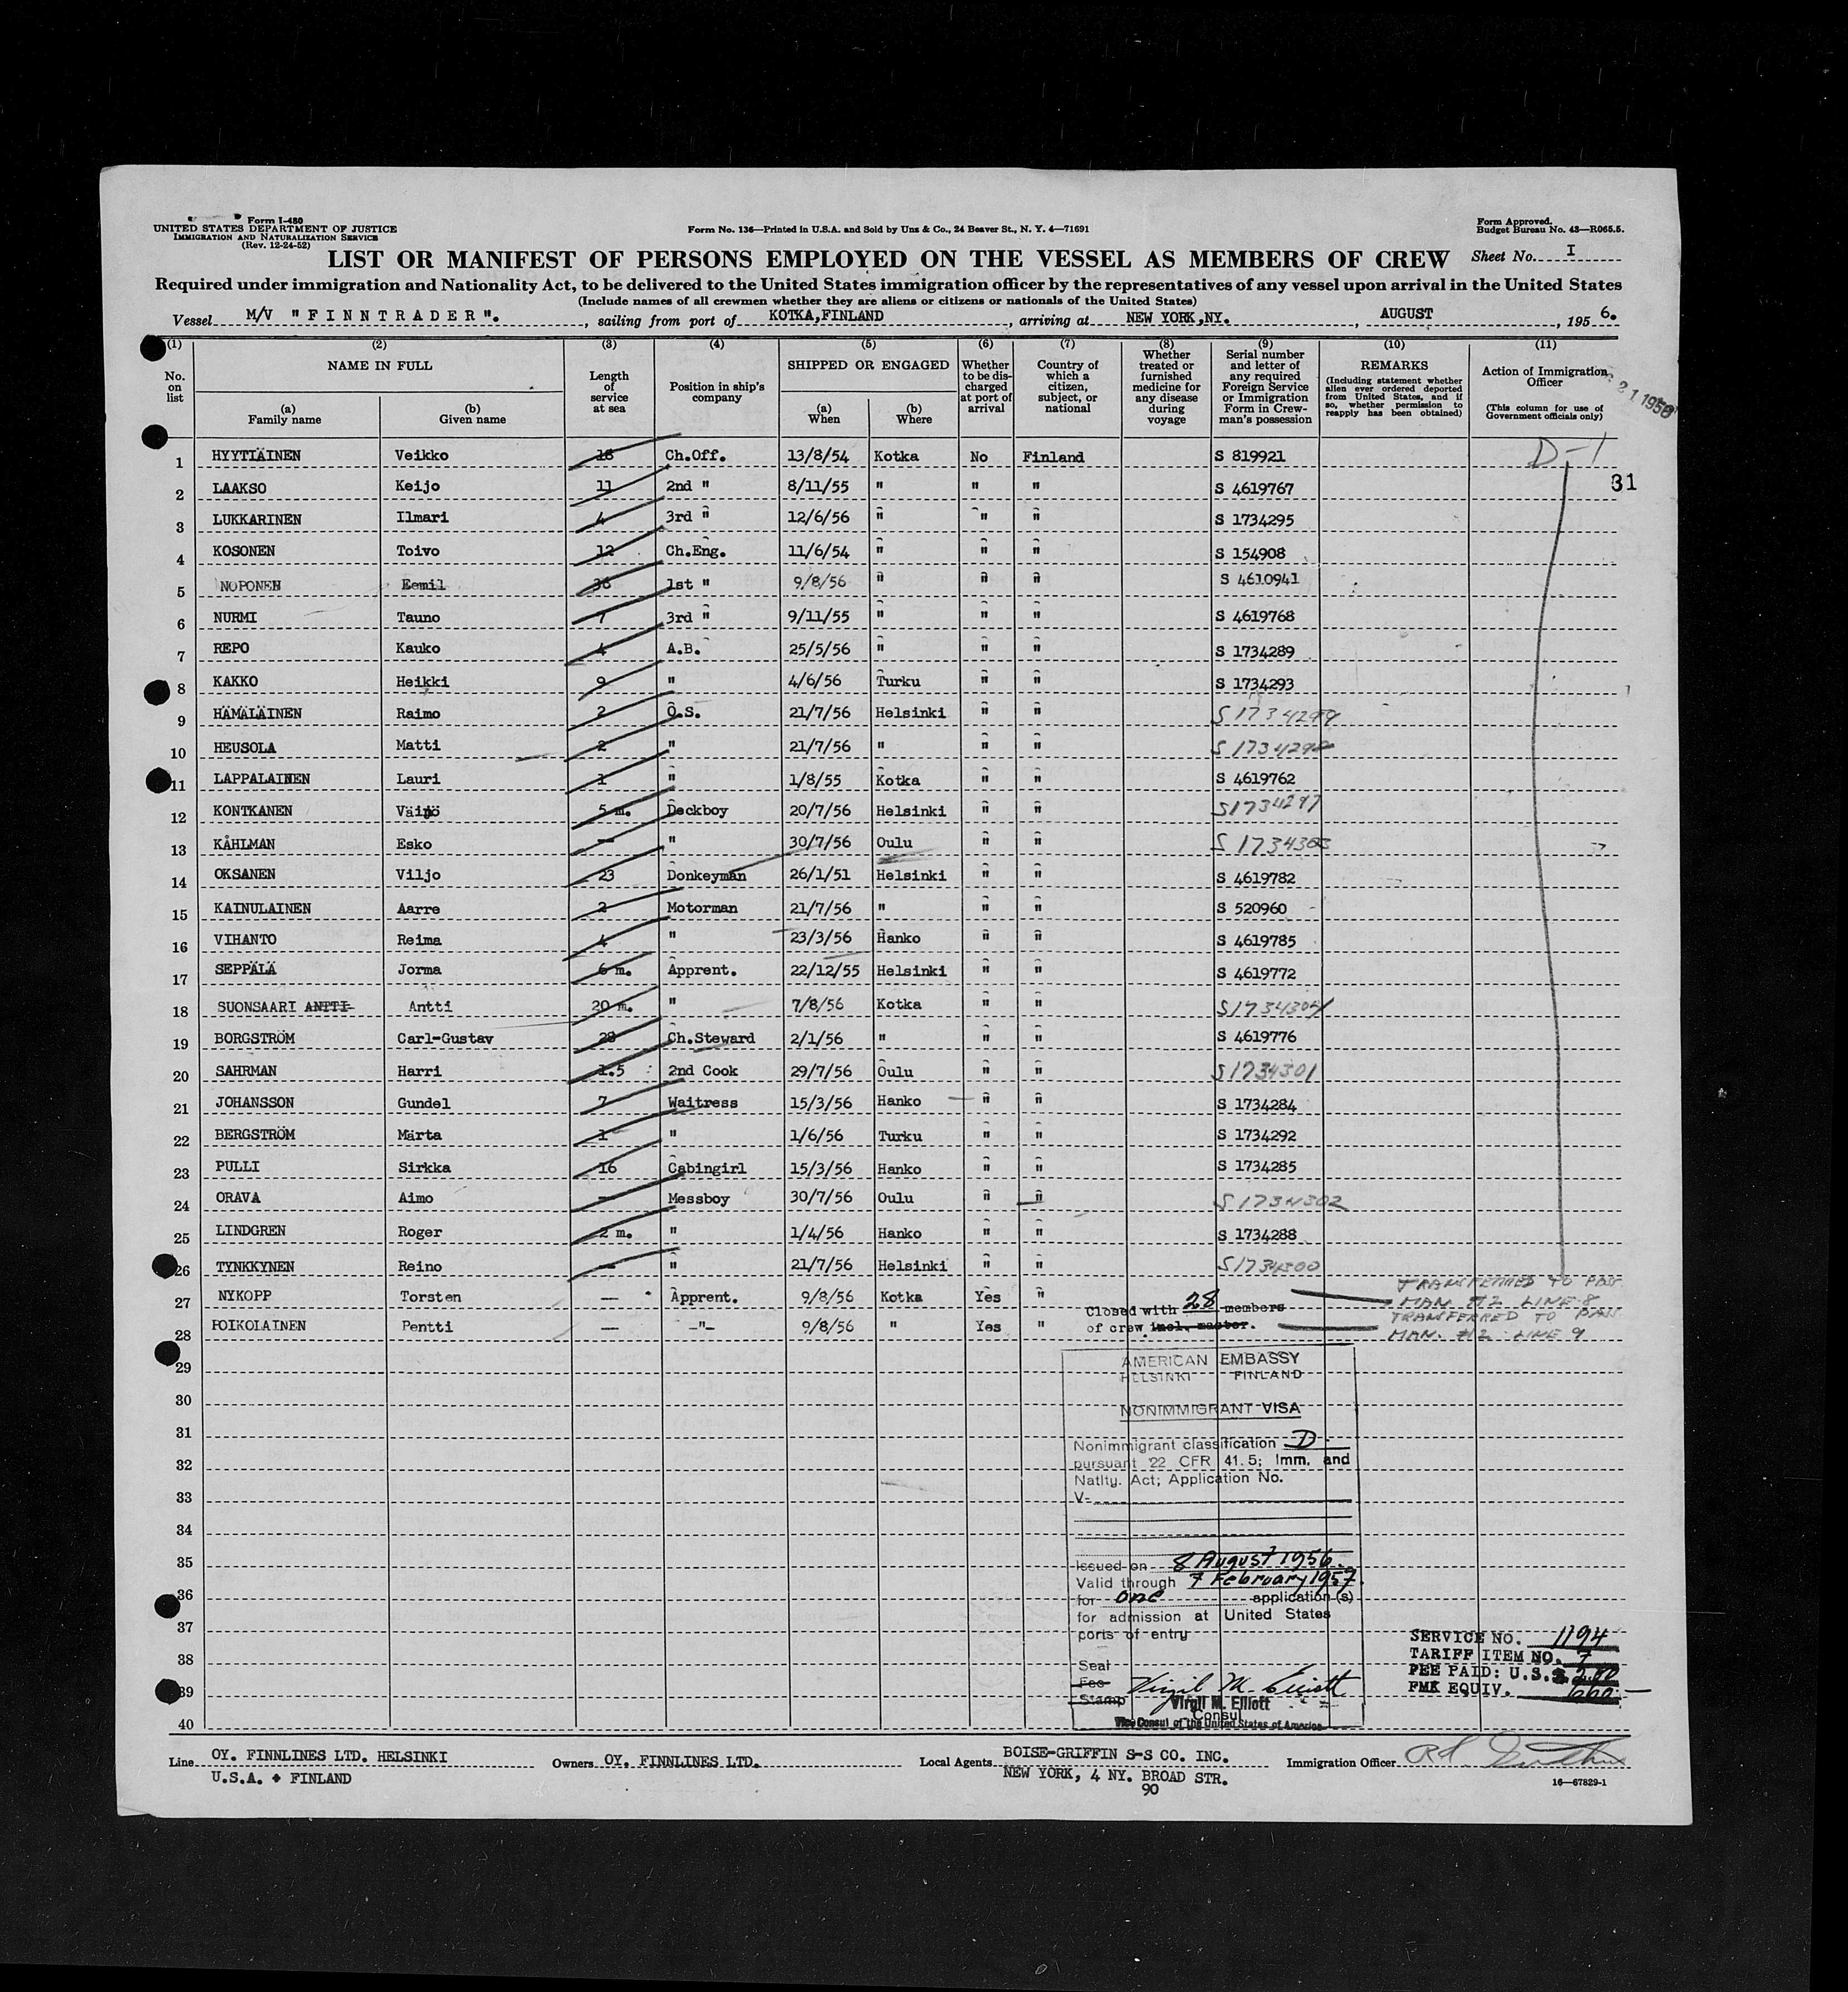 Form I-480
UNITED STATES DEPARTMENT OF JUSTICE
IMMIGRATION AND NATURALIZATION SERVICE
(Rev. 12-24-52)
Form No. 136—Printed in U.S.A. and Sold by Unz & Co., 24 Beaver St., N. Y. 4—71691
Form Approved.
Budget Bureau No. 43—R065.5.
LIST OR MANIFEST OF PERSONS EMPLOYED ON THE VESSEL AS MEMBERS OF CREW Sheet No. I
Required under immigration and Nationality Act, to be delivered to the United States immigration officer by the representatives of any vessel upon arrival in the United States
(Include names of all crewmen whether they are aliens or citizens or nationals of the United States)
Vessel M/V "FINNTRADER"., sailing from port of KOTKA,FINLAND, arriving at NEW YORK,NY., AUGUST, 1956.
(1) (2) (3) (4) (5) (6) (7) (8) (9) (10) (11)
No. on list
NAME IN FULL
(a) Family name
(b) Given name
Length of service at sea
Position in ship's company
SHIPPED OR ENGAGED
(a) When
(b) Where
Whether to be discharged at port of arrival
Country of which a citizen, subject, or national
Whether treated or furnished medicine for any disease during voyage
Serial number and letter of any required Foreign Service or Immigration Form in Crewman's possession
REMARKS
(Including statement whether alien ever ordered deported from United States, and if so, whether permission to reapply has been obtained)
Action of Immigration Officer
(This column for use of Government officials only)
21 1956
D-1
31
1 HYYTIÄINEN Veikko 18 Ch.Off. 13/8/54 Kotka No Finland S 819921
2 LAAKSO Keijo 11 2nd " 8/11/55 " " " S 4619767
3 LUKKARINEN Ilmari 4 3rd " 12/6/56 " " " S 1734295
4 KOSONEN Toivo 12 Ch.Eng. 11/6/54 " " " S 154908
5 NOPONEN Eemil 36 1st " 9/8/56 " " " S 4610941
6 NURMI Tauno 7 3rd " 9/11/55 " " " S 4619768
7 REPO Kauko 4 A.B. 25/5/56 " " " S 1734289
8 KAKKO Heikki 9 " 4/6/56 Turku " " S 1734293
9 HÄMÄLÄINEN Raimo 2 O.S. 21/7/56 Helsinki " " S 1734299
10 HEUSOLA Matti 2 " 21/7/56 " " " S 1734298
11 LAPPALAINEN Lauri 1 " 1/8/55 Kotka " " S 4619762
12 KONTKANEN Väinö 5 m. Deckboy 20/7/56 Helsinki " " S1734297
13 KÅHLMAN Esko — " 30/7/56 Oulu " " S 1734303
14 OKSANEN Viljo 23 Donkeyman 26/1/51 Helsinki " " S 4619782
15 KAINULAINEN Aarre 2 Motorman 21/7/56 " " " S 520960
16 VIHANTO Reima 4 " 23/3/56 Hanko " " S 4619785
17 SEPPÄLÄ Jorma 6 m. Apprent. 22/12/55 Helsinki " " S 4619772
18 SUONSAARI ANTTI Antti 20 m. " 7/8/56 Kotka " " S1734304
19 BORGSTRÖM Carl-Gustav 28 Ch.Steward 2/1/56 " " " S 4619776
20 SAHRMAN Harri 1.5 2nd Cook 29/7/56 Oulu " " S1734301
21 JOHANSSON Gundel 7 Waitress 15/3/56 Hanko " " S 1734284
22 BERGSTRÖM Märta 1 " 1/6/56 Turku " " S 1734292
23 PULLI Sirkka 16 Cabingirl 15/3/56 Hanko " " S 1734285
24 ORAVA Aimo — Messboy 30/7/56 Oulu " " S 1734302
25 LINDGREN Roger 2 m. " 1/4/56 Hanko " " S 1734288
26 TYNKKYNEN Reino — " 21/7/56 Helsinki " " S1734300
27 NYKOPP Torsten — Apprent. 9/8/56 Kotka Yes " TRANSFERRED TO PASS. MAN. #2 LINE 8
28 POIKOLAINEN Pentti — -"- 9/8/56 " Yes " TRANSFERRED TO PASS. MAN. #2 LINE 9
Closed with 28 members
of crew incl. master.
29
30
31
32
33
34
35
36
37
38
39
40
AMERICAN EMBASSY
HELSINKI FINLAND
NONIMMIGRANT VISA
Nonimmigrant classification D
pursuant 22 CFR 41.5; Imm. and
Natlty. Act; Application No.
V-
Issued on 8 August 1956.
Valid through 7 February 1957.
for one application(s)
for admission at United States
ports of entry
Seal
Fee
Stamp
Virgil M. Elliott
Virgil M. Elliott
Consul
Vice Consul of the United States of America
SERVICE NO. 1194
TARIFF ITEM NO. 7
FEE PAID: U.S.$ 2.80
FMK EQUIV. 660.—
Line OY. FINNLINES LTD. HELSINKI Owners OY. FINNLINES LTD. Local Agents BOISE-GRIFFIN S-S CO. INC. Immigration Officer
U.S.A. + FINLAND NEW YORK, 4 NY. BROAD STR.
90
16—67829-1